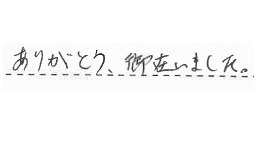 ありがとう、御在いました。